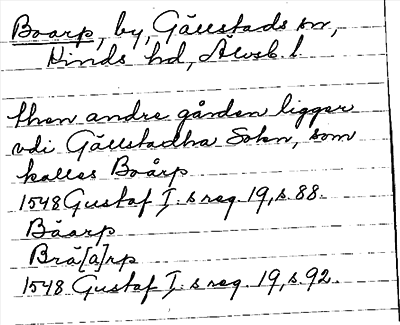 Boarp, by, Gällstads sn,
Kinds hd, Älvsb. l.
then andre gården ligger
vdi Gällstadha Sokn, som
kalles Boårp
1548 Gustaf I:s reg. 19, s. 88.
Båarp
Brå[a]rp
1548 Gustaf I:s reg. 19, s. 92.